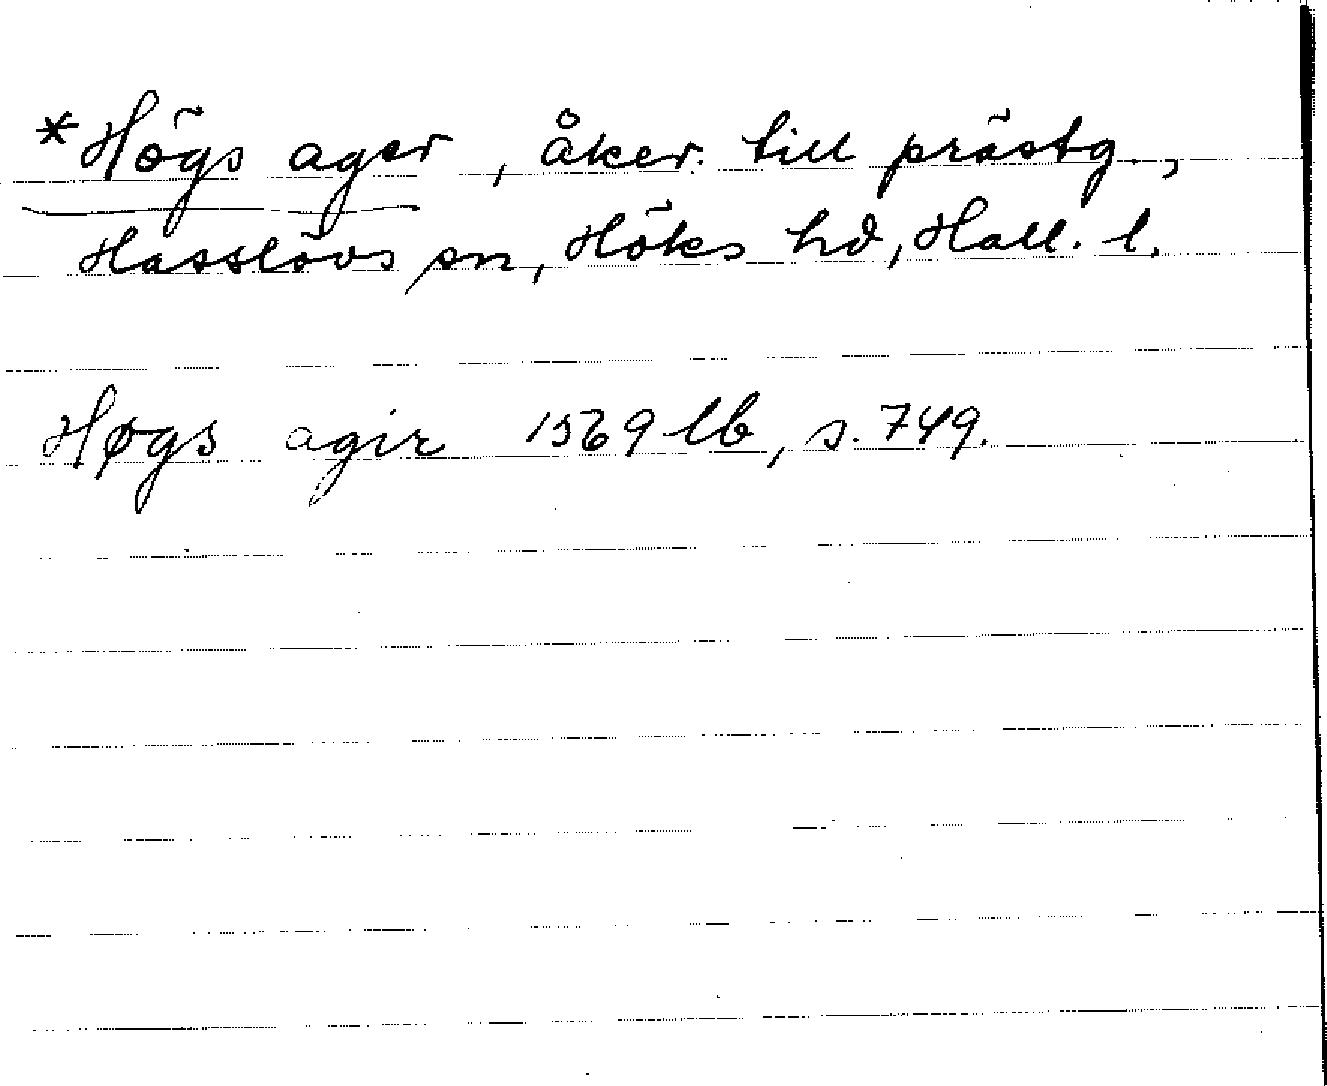 *Högs ager, åker till prästg.,
Hasslövs sn, Höks hd, Hall. l.
Høgs agir 1569 lb, s. 749.